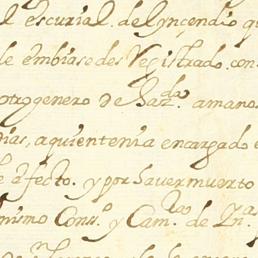 l escurial. del yncendio q
le embiase des Vegistrado. con
otro genero de haz.da amano
dias, aquien tenia encargado e
e efecto. y por haver muerto
mismo Cons.o y Cam.ra de Yn.s